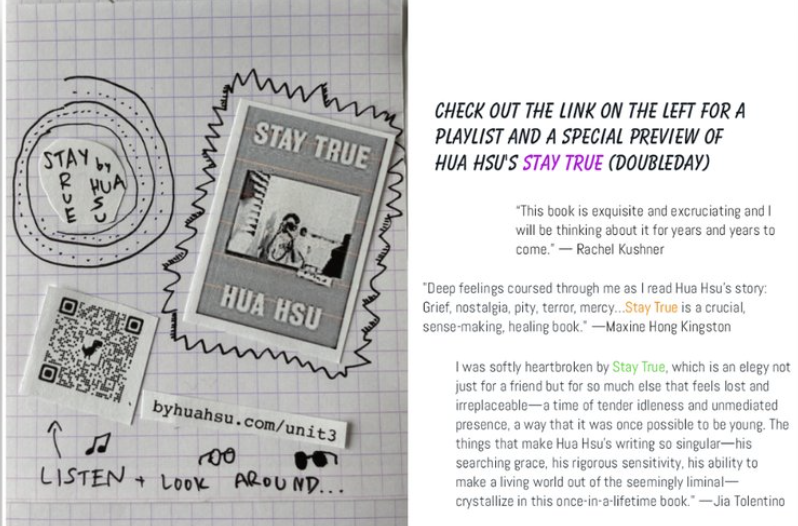 STAY by
TRUE
HUA
HSU
STAY TRUE
HUA HSU
byhuahsu.com/unit3
LISTEN + LOOK AROUND...
CHECK OUT THE LINK ON THE LEFT FOR A
PLAYLIST AND A SPECIAL PREVIEW OF
HUA HSU'S STAY TRUE (DOUBLEDAY)
"This book is exquisite and excruciating and I
will be thinking about it for years and years to
come." — Rachel Kushner
"Deep feelings coursed through me as I read Hua Hsu's story:
Grief, nostalgia, pity, terror, mercy...Stay True is a crucial,
sense-making, healing book." —Maxine Hong Kingston
I was softly heartbroken by Stay True, which is an elegy not
just for a friend but for so much else that feels lost and
irreplaceable—a time of tender idleness and unmediated
presence, a way that it was once possible to be young. The
things that make Hua Hsu's writing so singular—his
searching grace, his rigorous sensitivity, his ability to
make a living world out of the seemingly liminal—
crystallize in this once-in-a-lifetime book." —Jia Tolentino